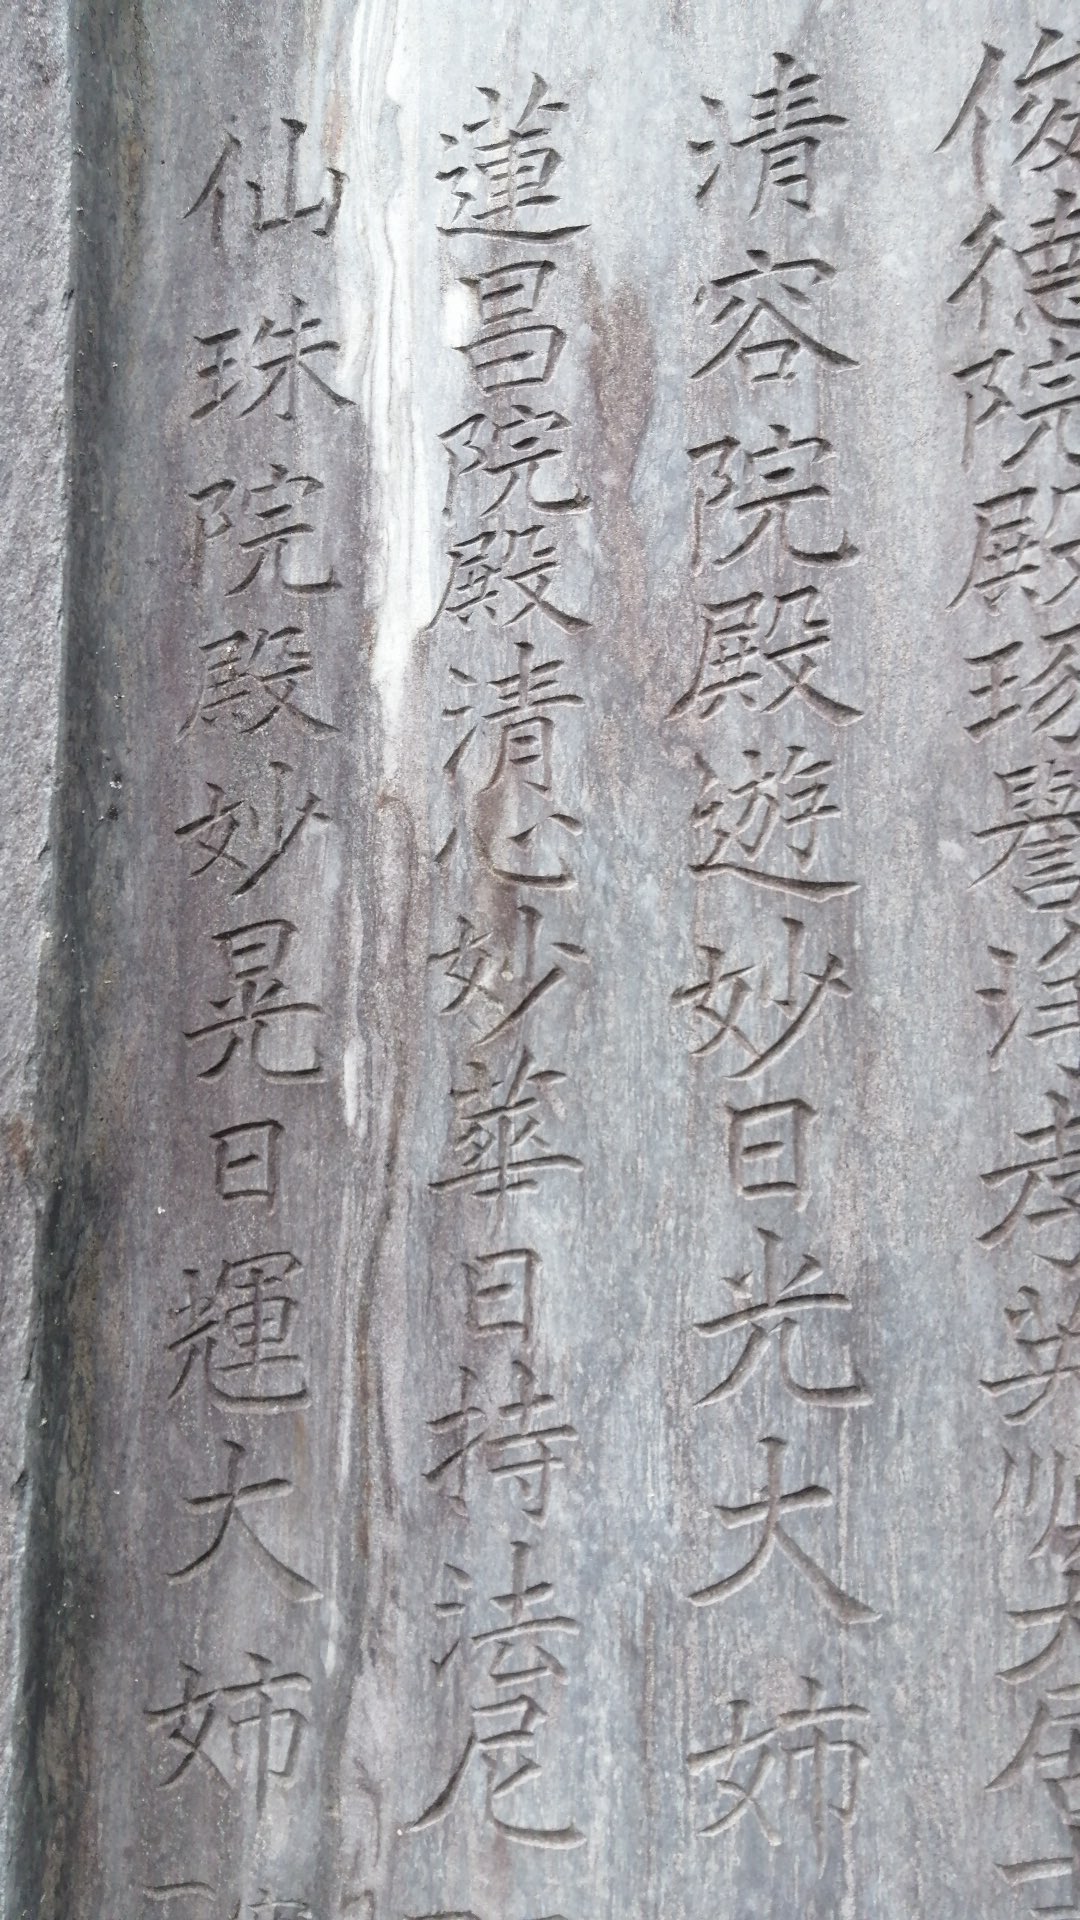 俊德院殿珍譽淨孝英順大居
清容院殿遊妙日光大姉
蓮昌院殿清心妙華日持法尼
仙珠院殿妙晃日輝大姉